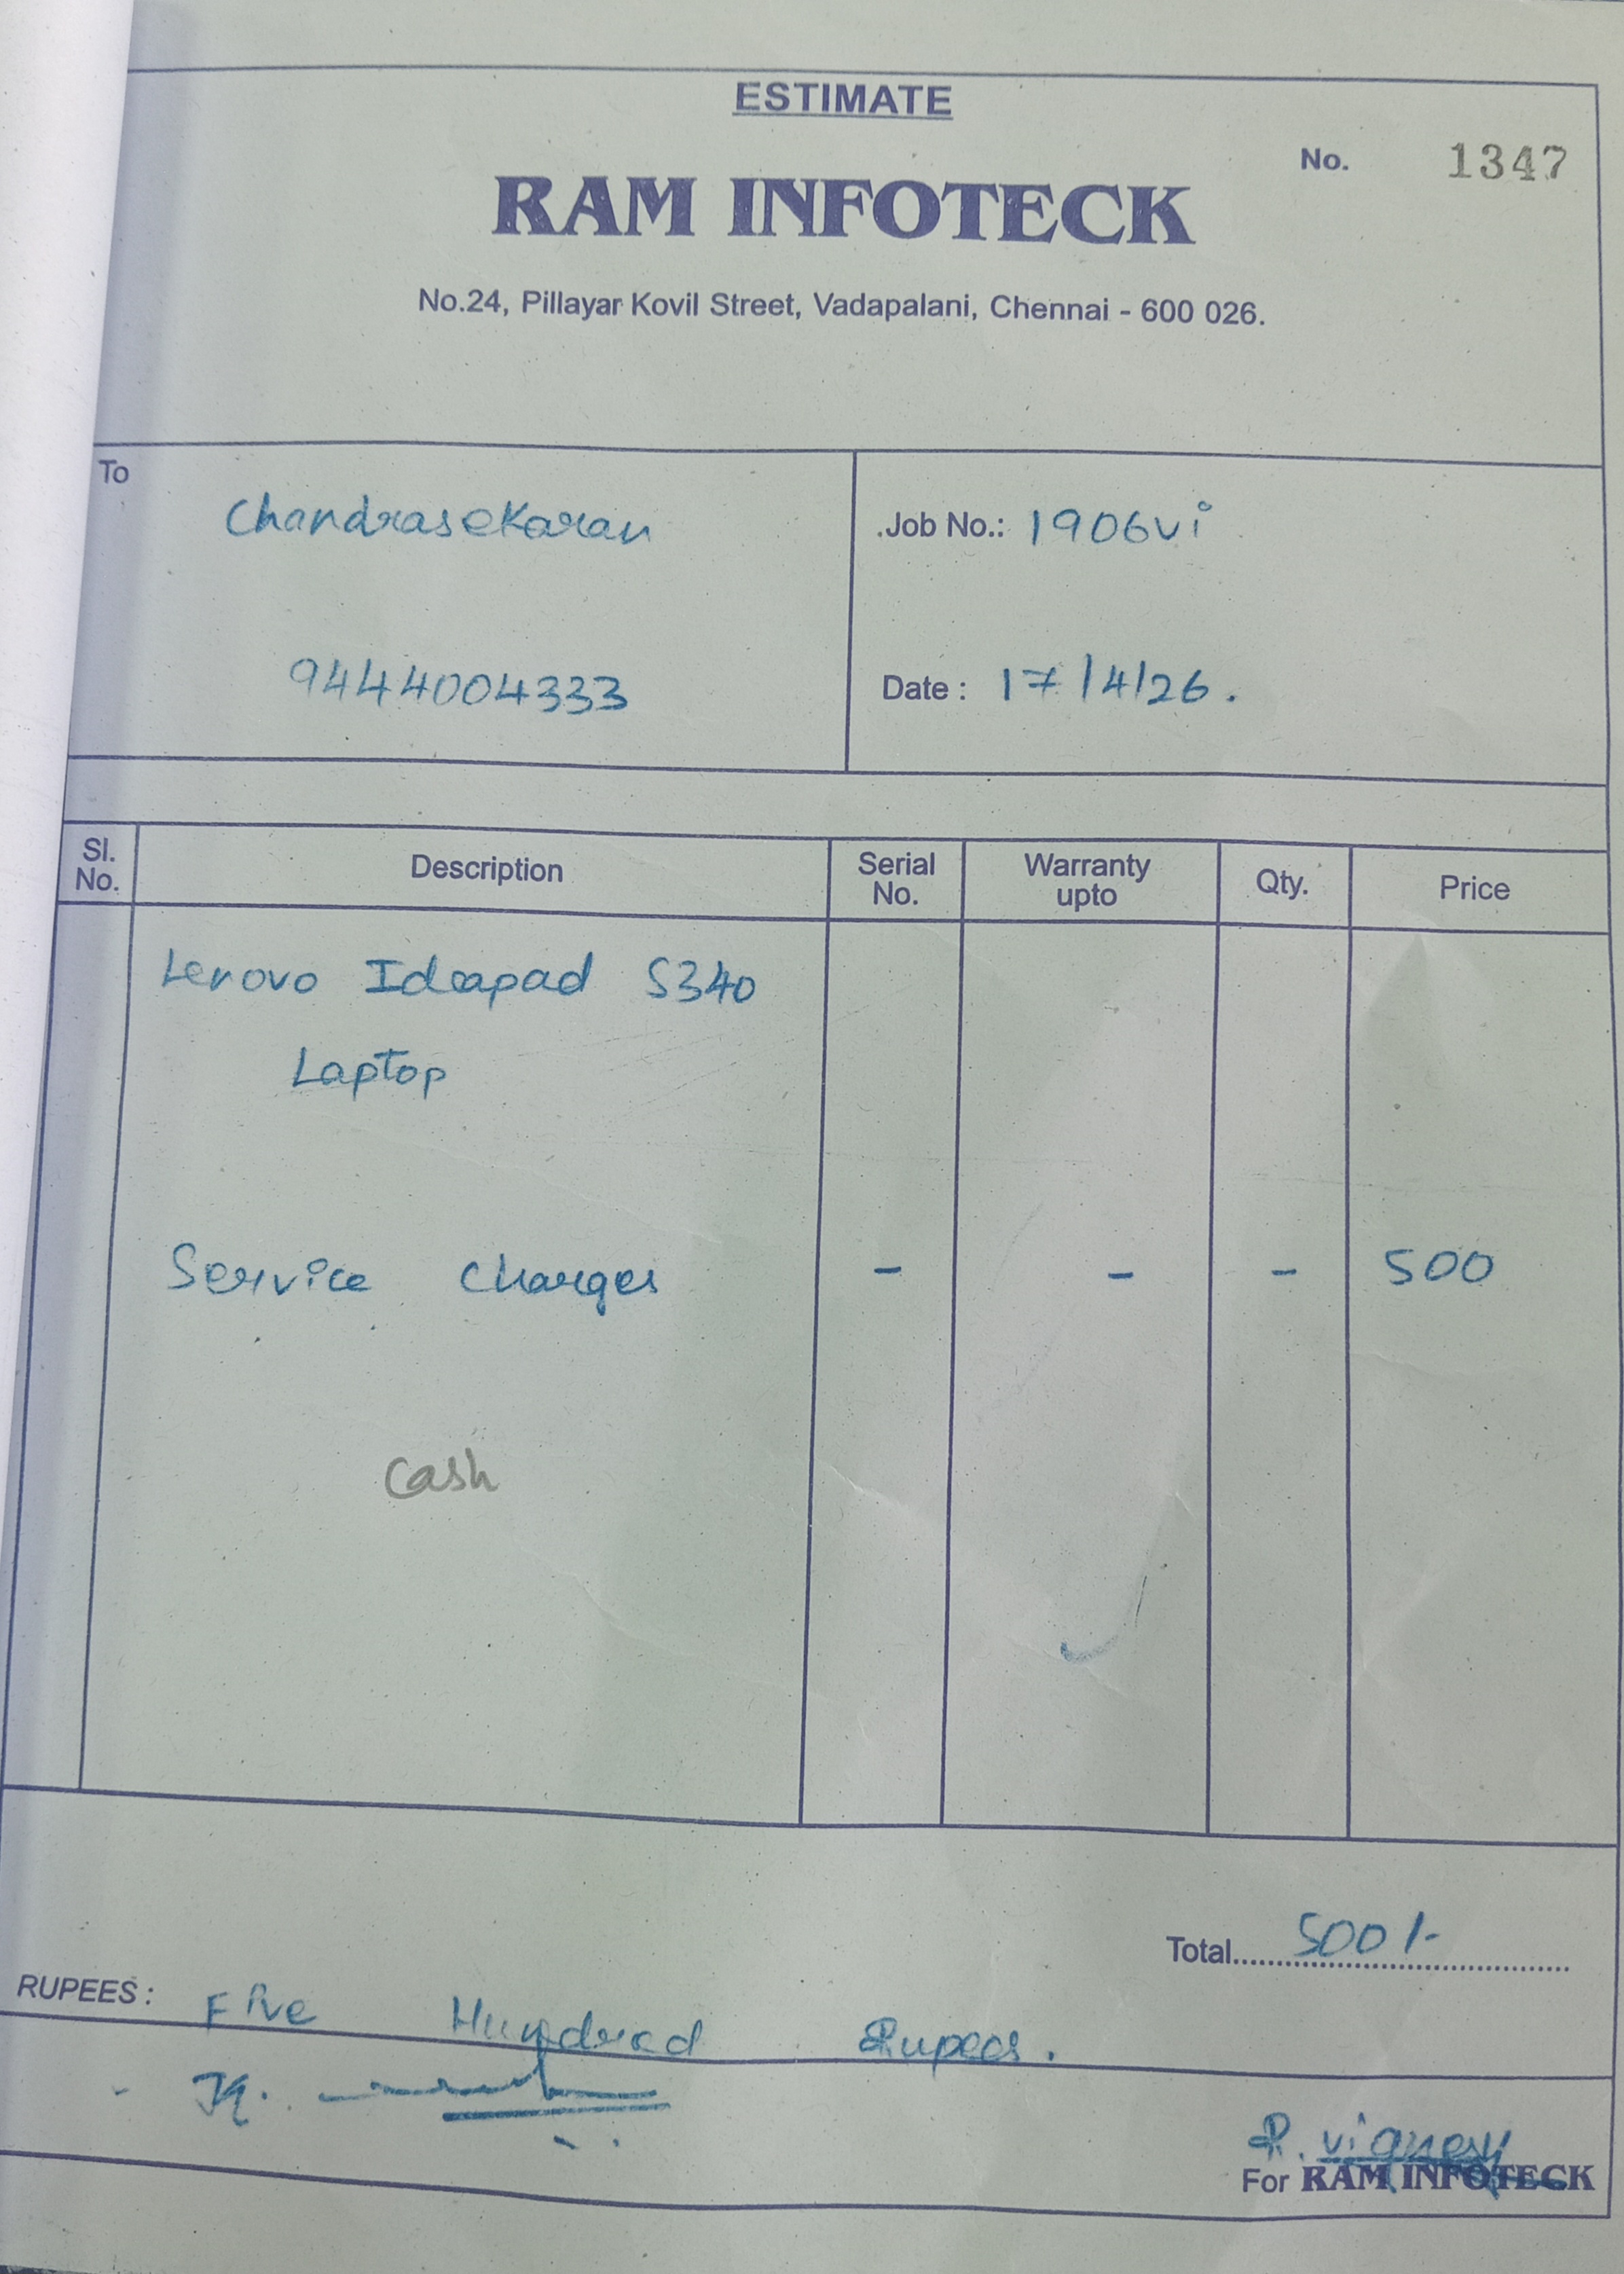 ESTIMATE
No. 1347
RAM INFOTECK
No.24, Pillayar Kovil Street, Vadapalani, Chennai - 600 026.
To
Chandrasekaran
9444004333
Job No.: 1906vi
Date : 17/4/26.
Sl. No. Description Serial No. Warranty upto Qty. Price
Lenovo Ideapad S340
Laptop
Service Charges - - - 500
Cash
Total 500/-
RUPEES : Five Hundred Rupees.
R. Vignesh
For RAM INFOTECK